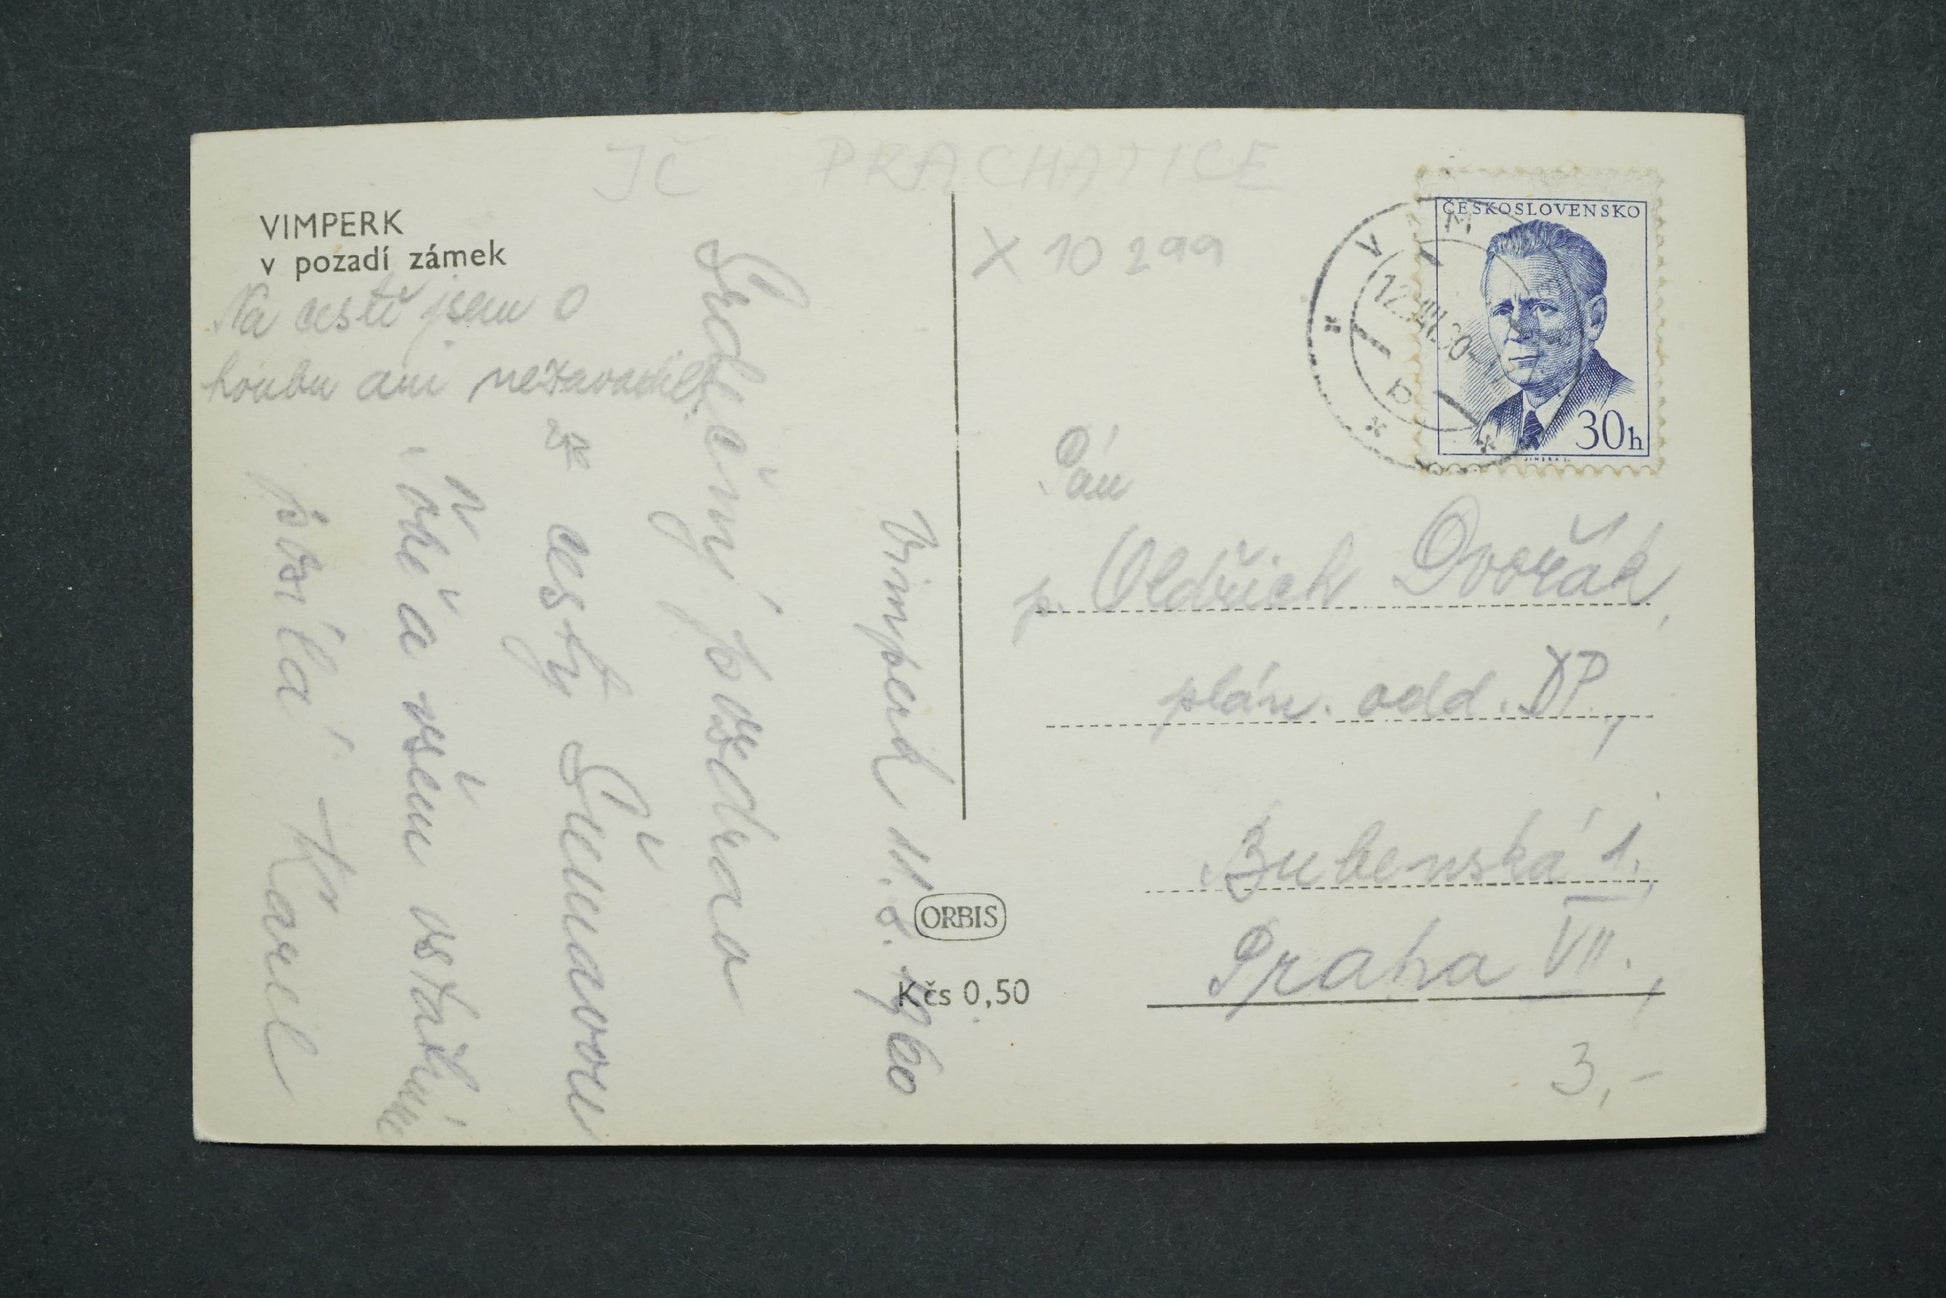 JČ PRACHATICE
X 10 299
VIMPERK
v pozadí zámek
Na cestě jsem o
houbu ani nezavadil.
Vimperk 11.8.1960
Srdečný pozdrav
z cesty Šumavou
Tobě a všem ostatním
posílá Karel
ORBIS
Kčs 0,50
ČESKOSLOVENSKO
30h
VIM
12.VIII.60
b
Pán
p. Oldřich Dvořák,
plán. odd. DP,
Bubenská 1.,
Praha VII.,
3,-